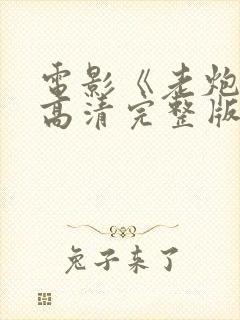 电影《走炮
高清完整版
兔子来了